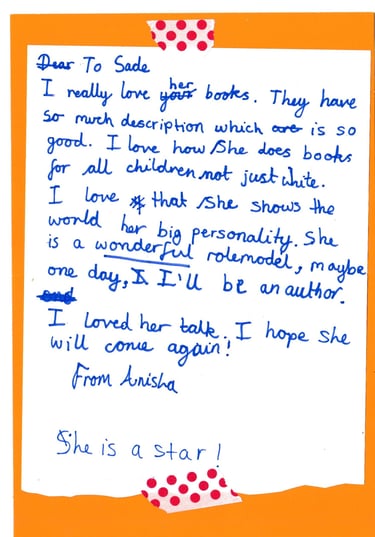 Dear To Sade
I really love your her books. They have
so much description which are is so
good. I love how She does books
for all children not just white.
I love that She shows the
world her big personality. She
is a wonderful rolemodel, maybe
one day, I I'll be an author.
and
I loved her talk. I hope she
will come again!
From Anisha
She is a star!